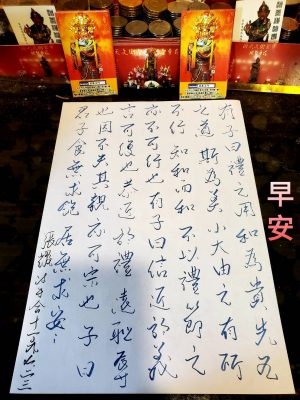 有子曰禮之用 和為貴 先王
之道 斯為美 小大由之 有所
不行 知和而和 不以禮節之
亦不可行也 有子曰信近於義
言可復也 恭近於禮 遠恥辱
也因不失其親 亦可宗也 子曰
君子食無求飽 居無求安
早安